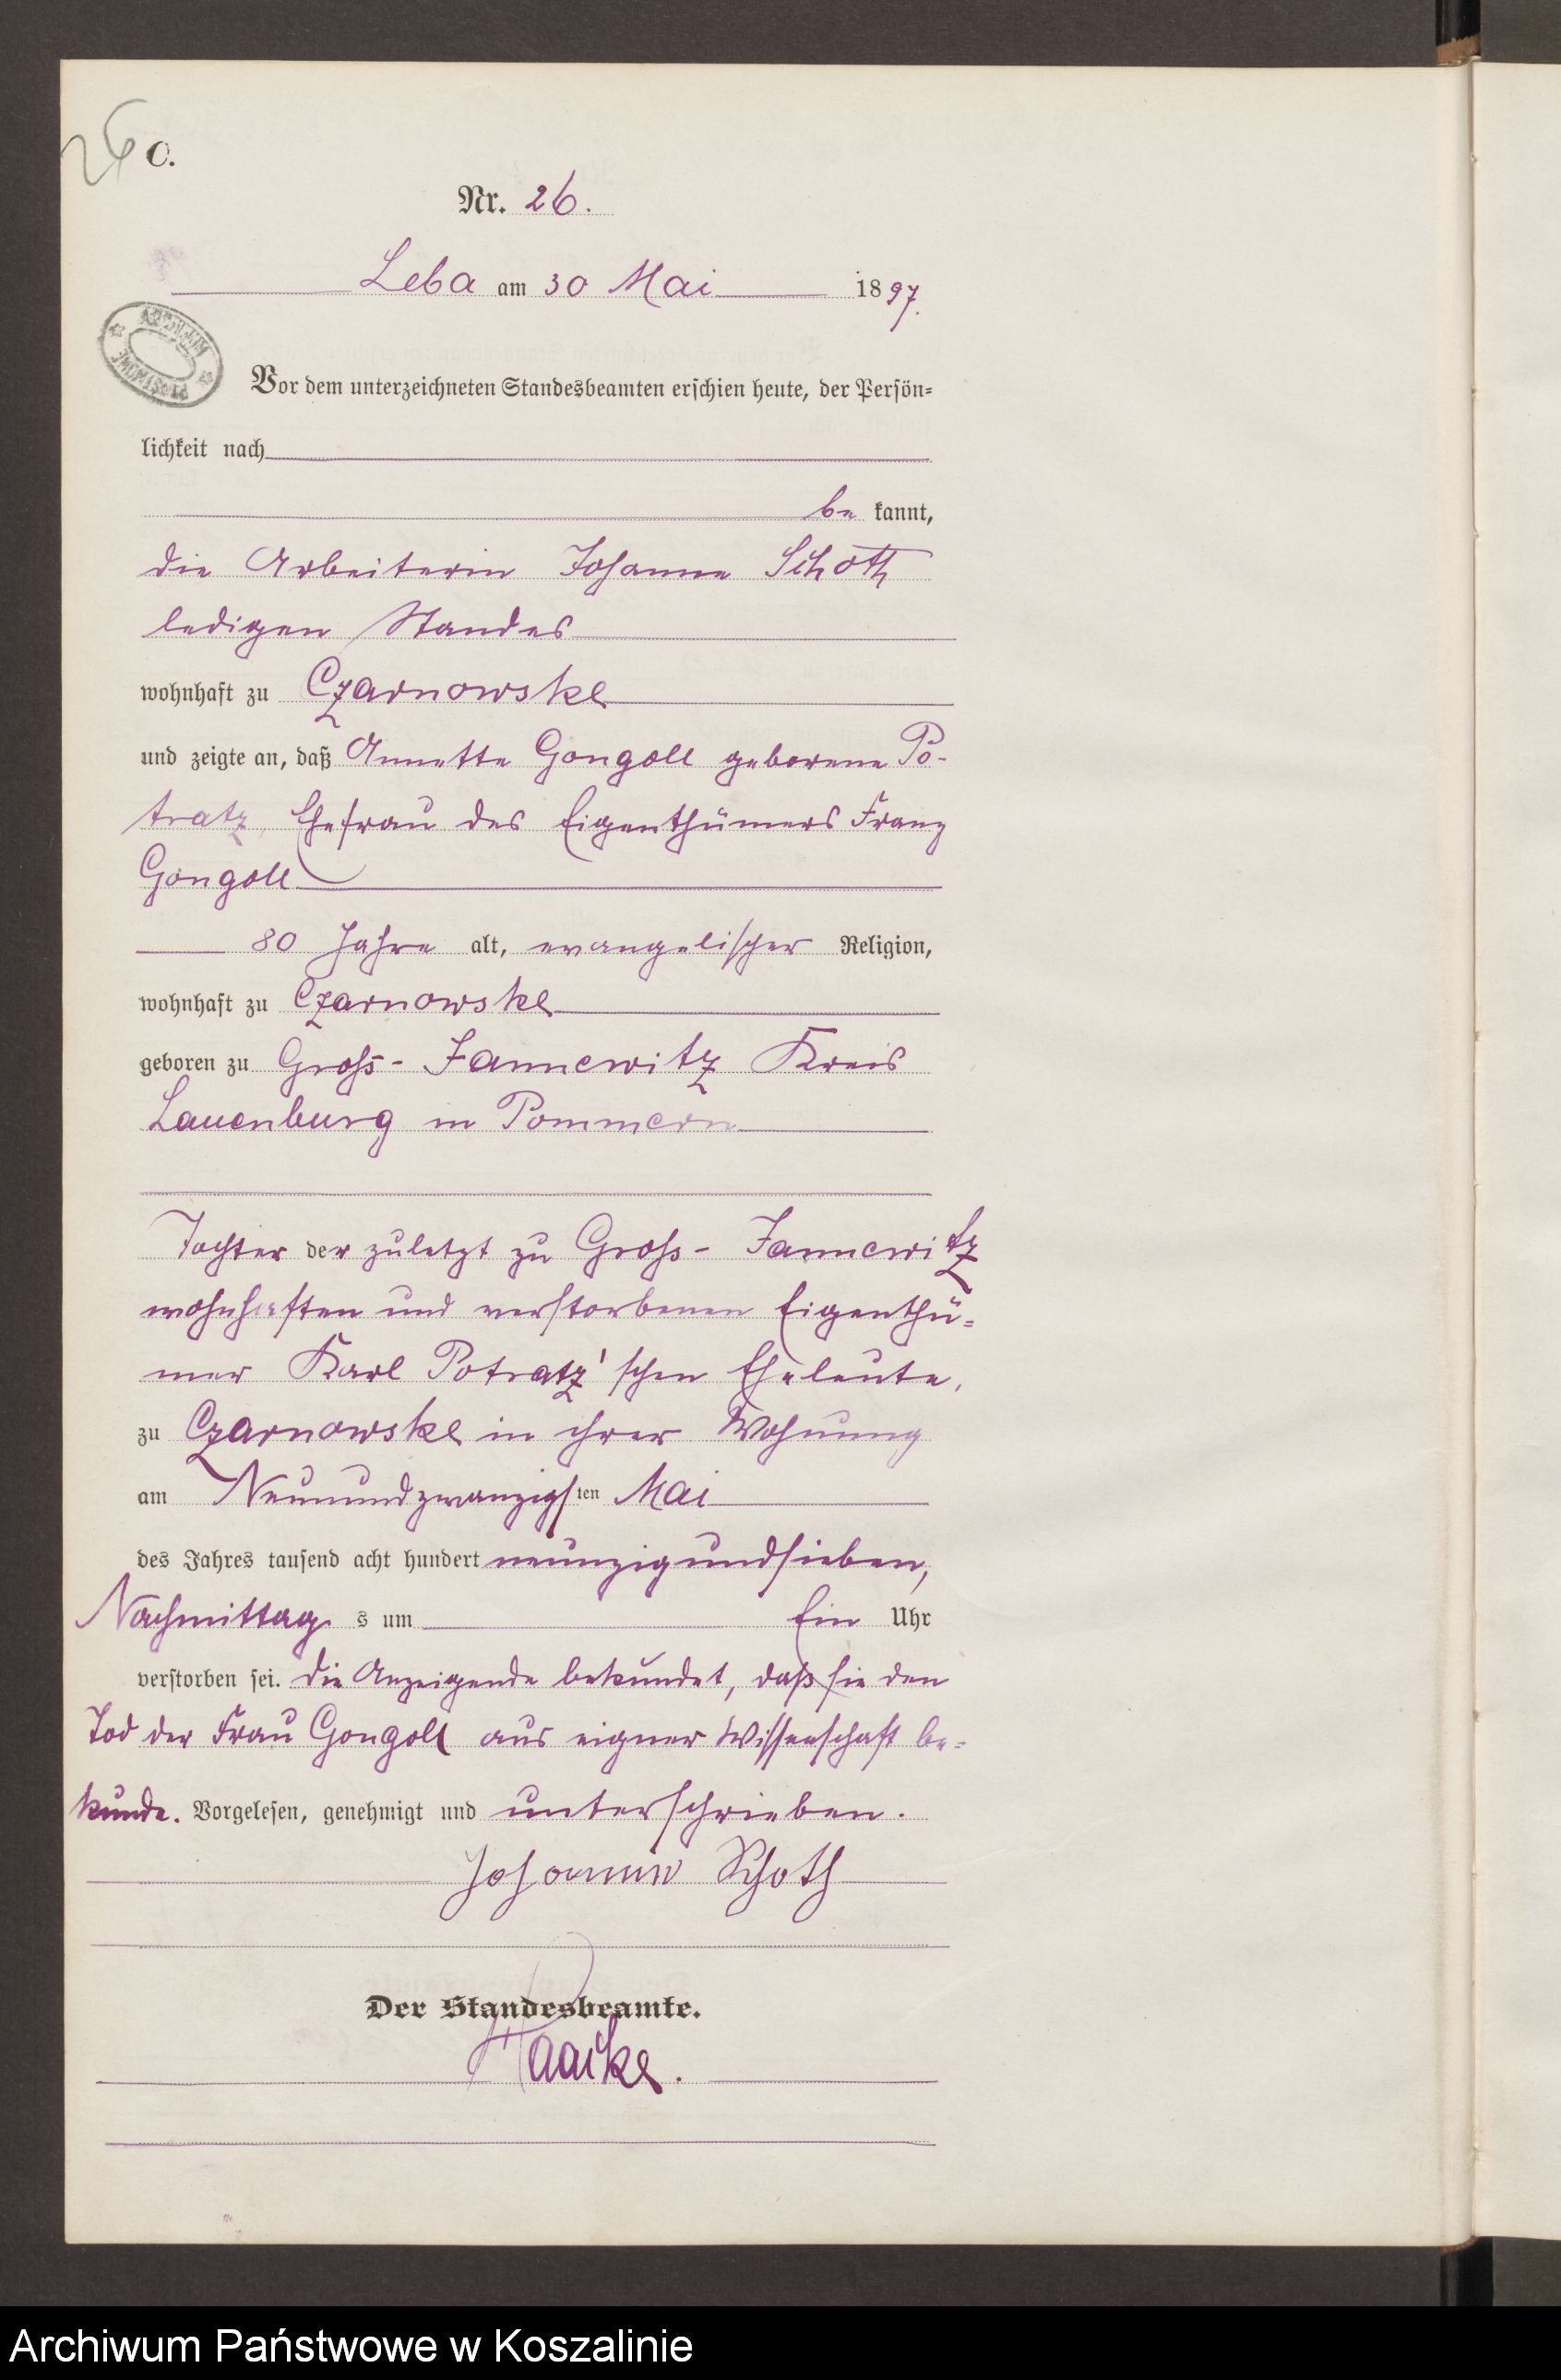 26
C.
Nr. 26.
Leba am 30 Mai 1897.
ARCHIWUM PAŃSTWOWE
Vor dem unterzeichneten Standesbeamten erschien heute, der Persön=
lichkeit nach
be kannt,
die Arbeiterin Johanne Schoth
ledigen Standes
wohnhaft zu Czarnowske
und zeigte an, daß Annette Gongoll geborene Po-
tratz, Ehefrau des Eigenthümers Franz
Gongoll
80 Jahre alt, evangelischer Religion,
wohnhaft zu Czarnowske
geboren zu Gross-Jannewitz Kreis
Lauenburg in Pommern
Tochter der zuletzt zu Gross-Jannewitz
wohnhaften und verstorbenen Eigenthü=
mer Karl Potratz'schen Eheleute,
zu Czarnowske in ihrer Wohnung
am Neunundzwanzigsten Mai
des Jahres tausend acht hundert neunzigundsieben,
Nachmittag s um Ein Uhr
verstorben sei. Die Anzeigende bekundet, daß sie den
Tod der Frau Gongoll aus eigner Wissenschaft be=
kunde. Vorgelesen, genehmigt und unterschrieben.
Johanne Schoth
Der Standesbeamte.
Archiwum Państwowe w Koszalinie